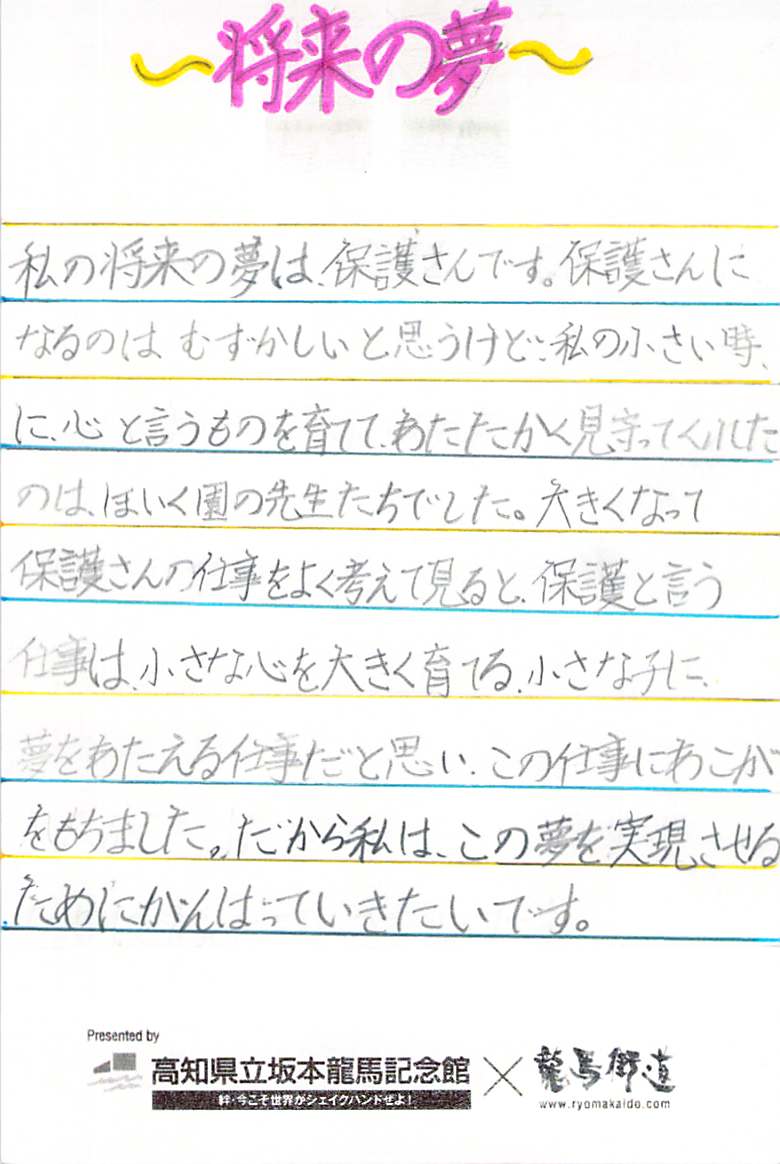 ~将来の夢~
私の将来の夢は、保護さんです。保護さんに
なるのは むずかしいと思うけど、私の小さい時、
に、心と言うものを育てて、あたたかく見守ってくれた
のは、ほいく園の先生たちでした。大きくなって
保護さんの仕事をよく考えて見ると、保護と言う
仕事は、小さな心を大きく育てる、小さな子に、
夢をあたえる仕事だと思い、この仕事にあこが
をもちました。だから私は、この夢を実現させる
ためにがんばっていきたいです。
Presented by
高知県立坂本龍馬記念館 × 龍馬街道
絆・今こそ世界がシェイクハンドぜよ!
www.ryomakaido.com